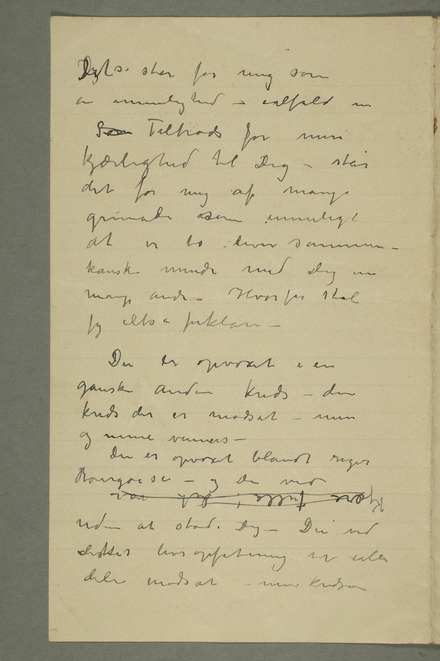 Det står for mig som
en umulighed – ialfald nu
Tiltrods for min
kjærlighed til Dig – står
det for mig af mange
grunde som umuligt
at vi to lever sammen –
kanske mindre med Dig en
mange andre – Hvorfor skal
jeg altså forklare –
Du er opvoxt i en
ganske anden kreds – den
kreds der er modsat – min
og mine venners –
Du er opvoxt blandt riges
Bourgoisi – og Du ved
uden at støde Dig – Du ved
livsopfatning er
modsat – min kreds